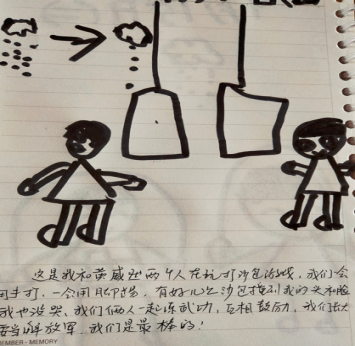 这是我和黄威然两个人在玩打沙包游戏，我们会
用手打，一会用脚踢，有好几次沙包撞到我的头和脸
我也没哭，我们俩人一起练武功，互相鼓励，我们长大
要当解放军，我们是最棒的！
EMBER · MEMORY